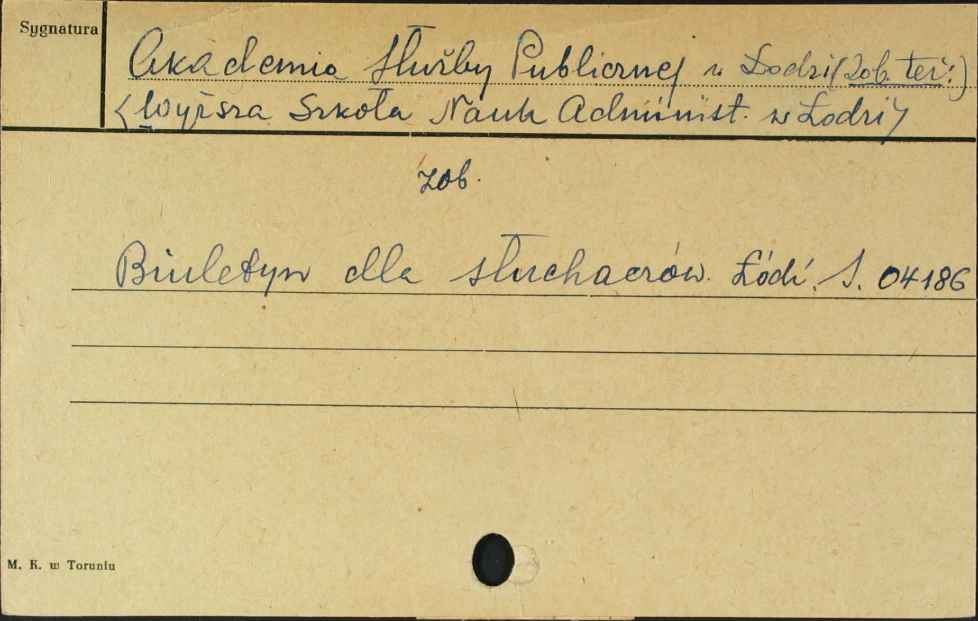 Sygnatura
Akademia Służby Publicznej w Łodzi (zob. też:)
<Wyższa Szkoła Nauk Administ. w Łodzi>
zob.
Biuletyn dla słuchaczów. Łódź. S. 04186
M. K. w Toruniu